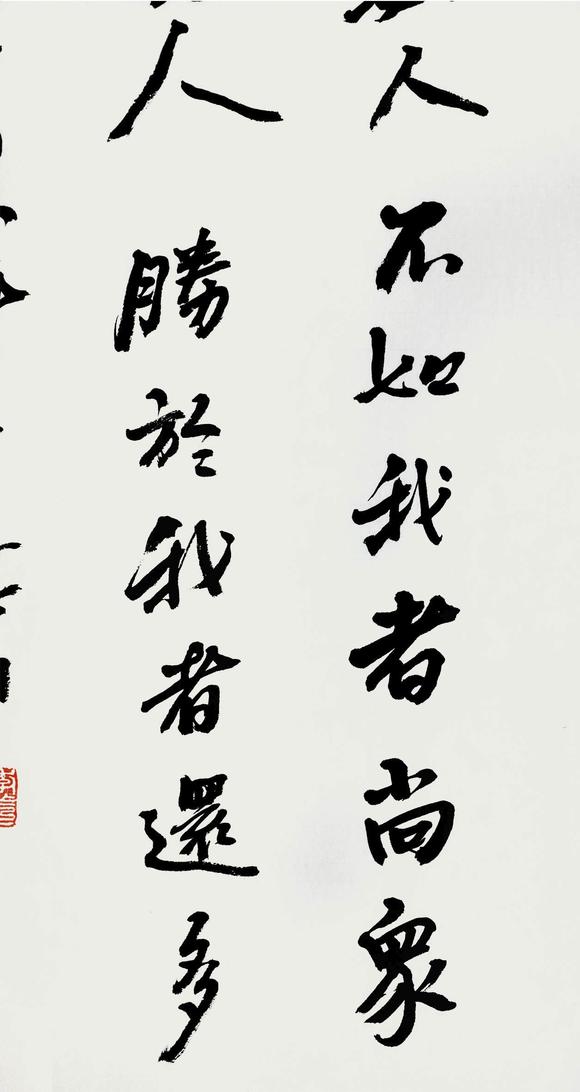 人不如我者尚眾
人勝於我者還多